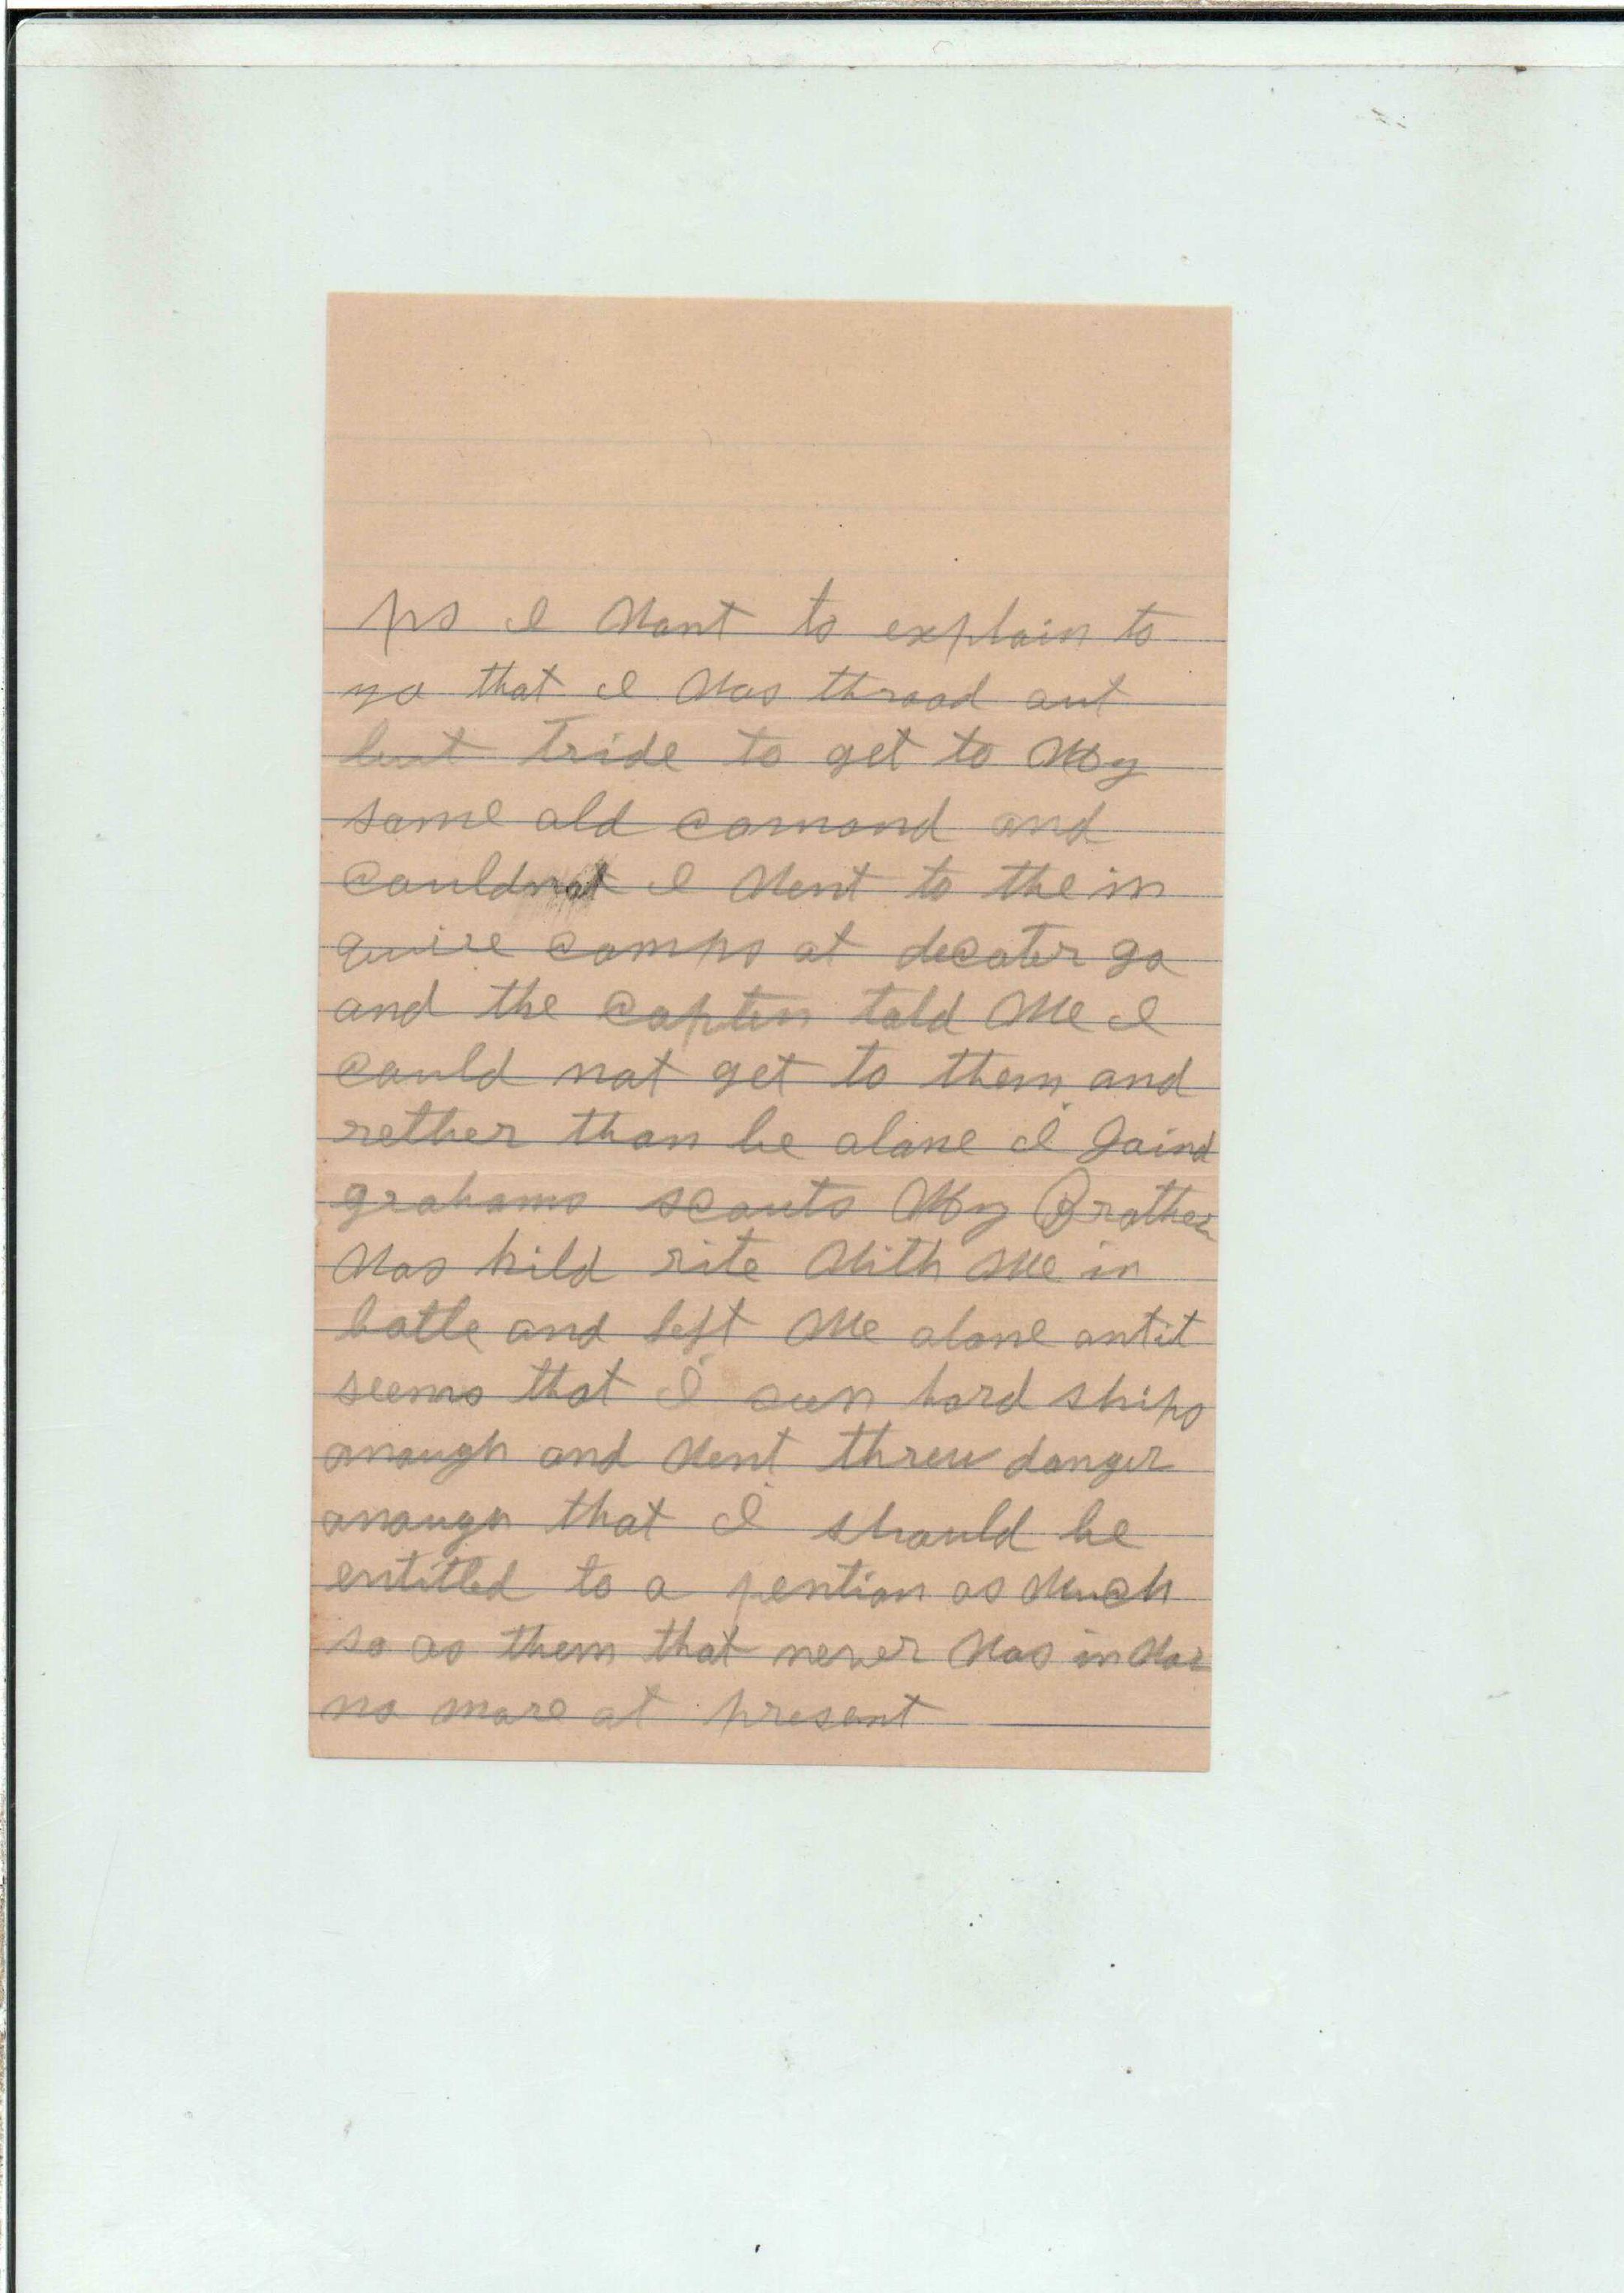 ps I Want to explain to
yo that I Was throod out
but Tride to get to My
same old comond and
Couldnot I Went to the in
quire camps at decater ga
and the Capten told Me I
Could not get to them and
rether than be alone I Joind
grahams scouts My Brother
Was kild rite With Me in
batle and left Me alone ontit
seems that I seen hard ships
anough and Went threw danger
anough that I should be
entitled to a pention as Much
so as them that never Was in War
no more at present